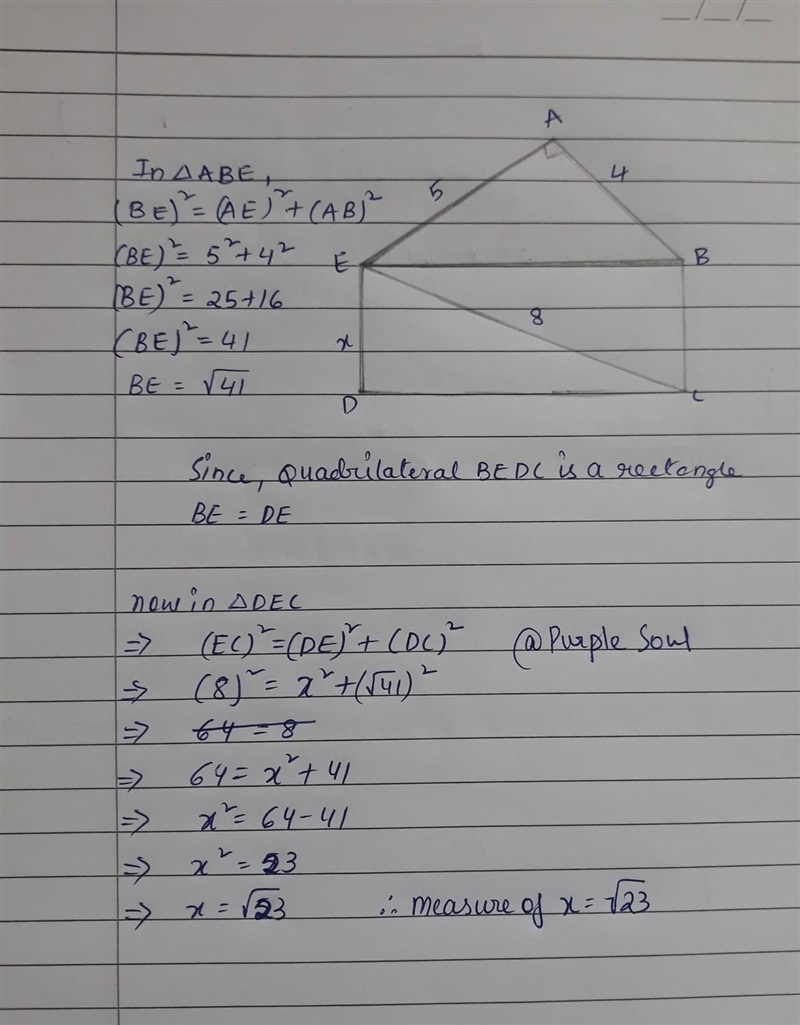 _/_/_
A
In △ABE,
5
4
(BE)² = (AE)² + (AB)²
(BE)² = 5² + 4²
E
B
(BE)² = 25+16
8
(BE)² = 41
x
BE = √41
D
C
Since, Quadrilateral BEDC is a rectangle
BE = DE
now in △DEC
⇒ (EC)² = (DE)² + (DC)² @Purple Soul
⇒ (8)² = x² + (√41)²
⇒ 64 = 8
⇒ 64 = x² + 41
⇒ x² = 64-41
⇒ x² = 23
⇒ x = √23 ∴ measure of x = √23